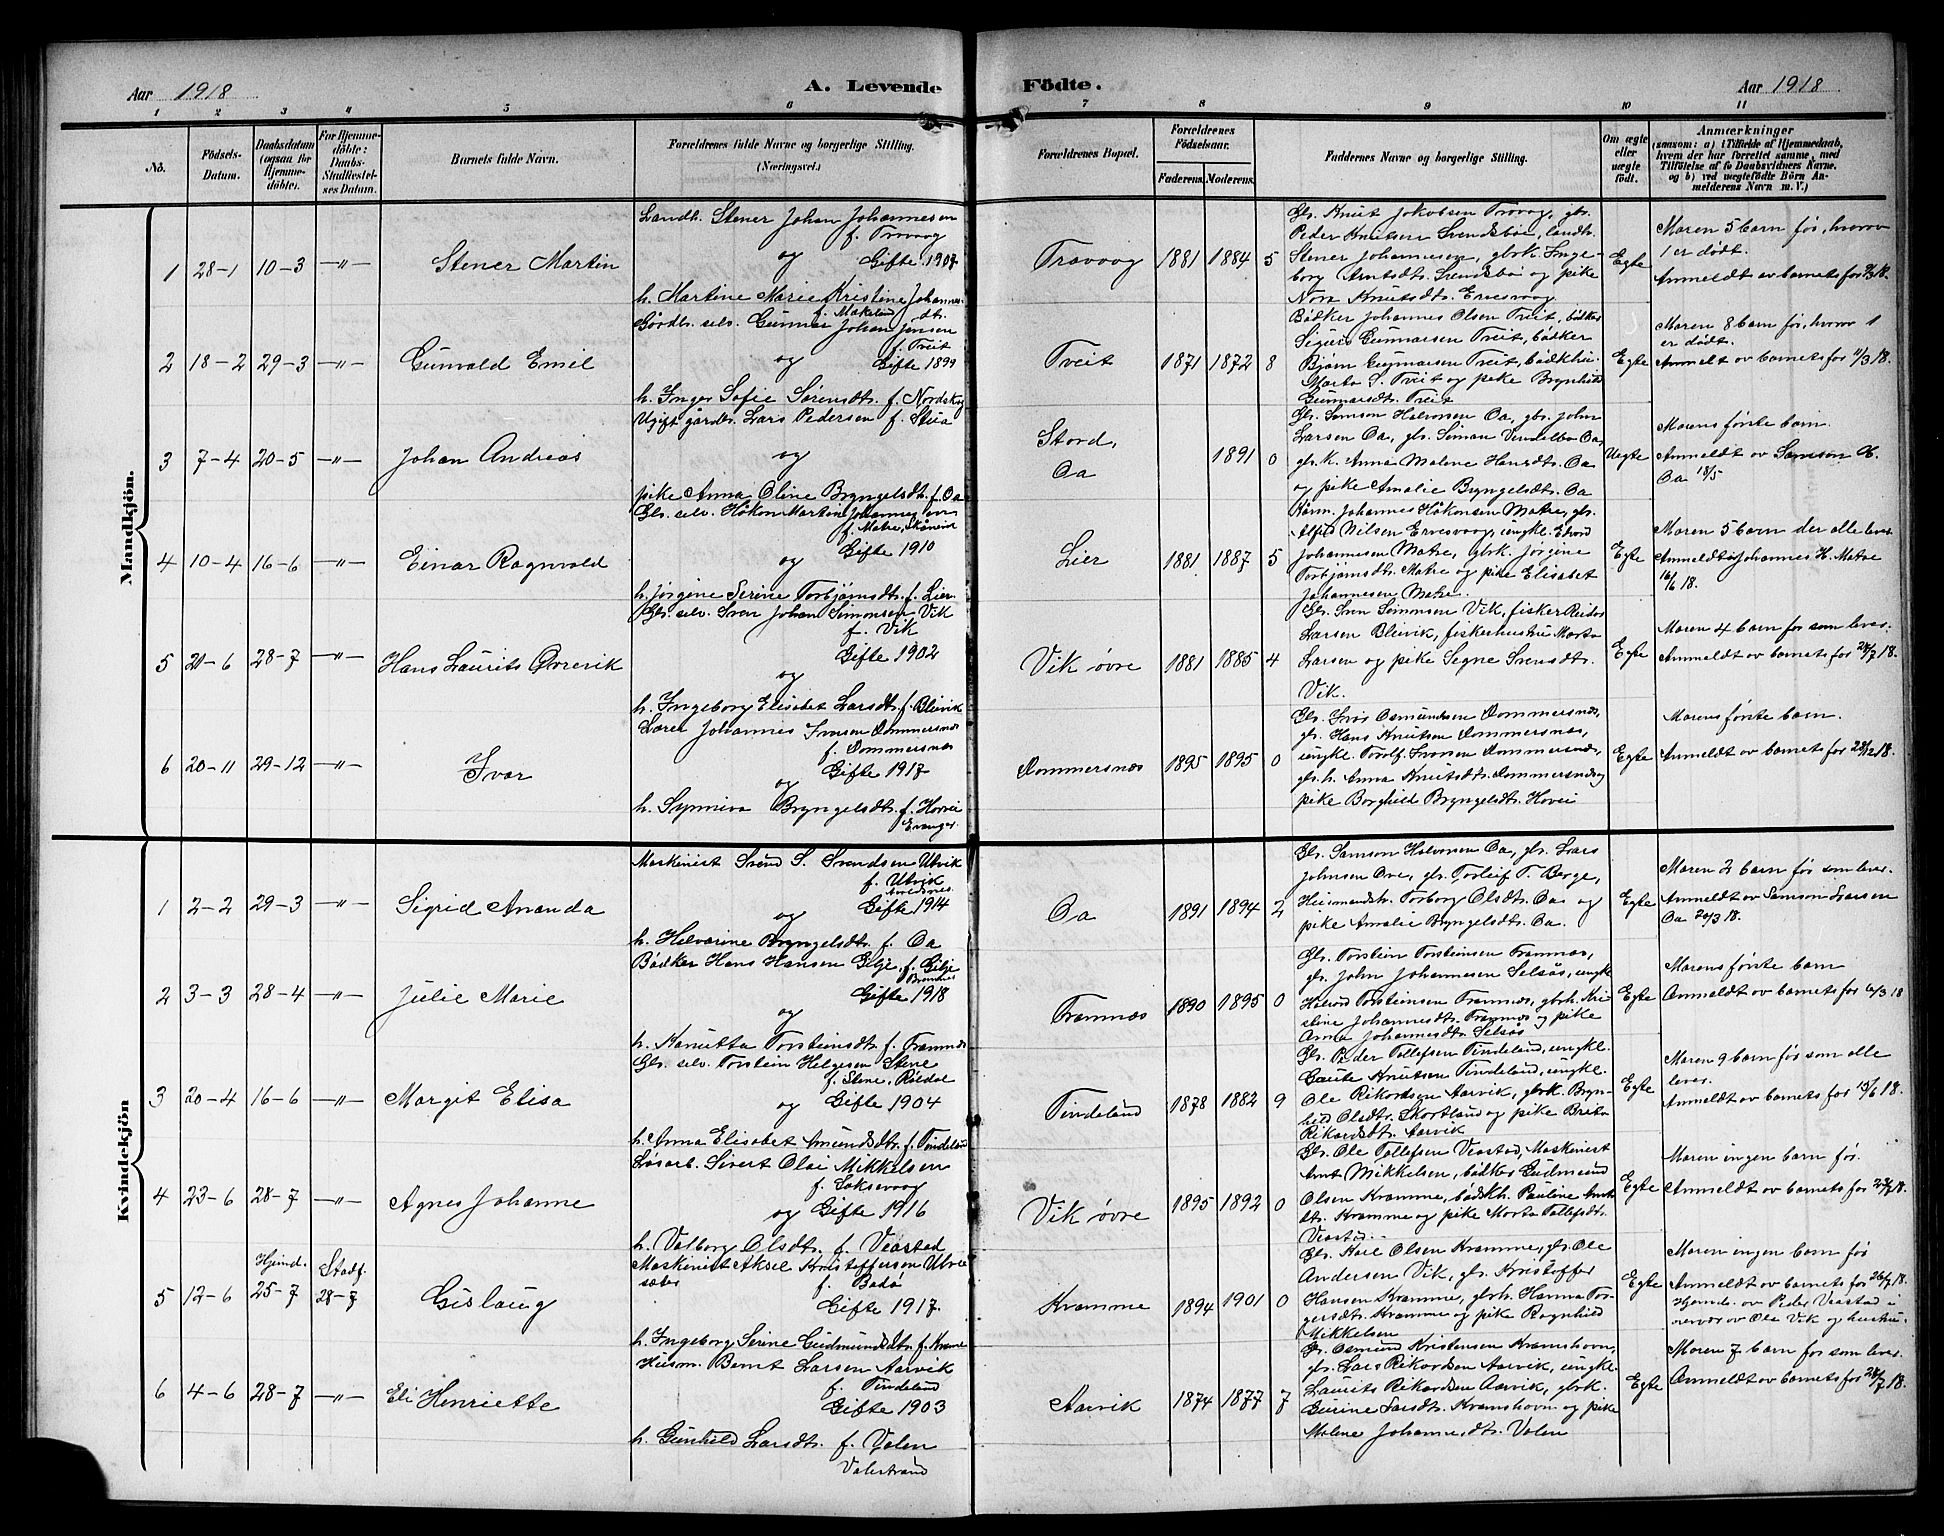 Aar 1918 A. Levende Födte. Aar 1918
1 2 3 4 5 6 7 8 9 10 11
No.
Födsels-Datum.
Daabsdatum (ogsaa for Hjemme-döbte).
For Hjemme-döbte: Daabs-Stadfæstel-ses Datum.
Barnets fulde Navn.
Forældrenes fulde Navne og borgerlige Stilling.
(Næringsvei.)
Forældrenes Bopæl.
Forældrenes Födselsaar.
Faderens. Moderens.
Faddernes Navne og borgerlige Stilling.
Om ægte eller uægte födt.
Anmærkninger
(saasom: a) i Tilfælde af Hjemmedaab,
hvem der har forrettet samme, med
Tilföielse af to Daabsvidners Navne.
og b) ved uægtefödte Börn An-
melderens Navn m. V.)
Mandkjön.
1 28-1 10-3 -"- Stener Martin
Landh. Stener Johan Johannesen
f. Trovaag
og Gifte 1907
h. Martine Marie Kristine Johannes-
dtr. f. Mækeland
Trovaag 1881 1884 5
Gbr. Knut Jakobsen Trovog, gbr.
Peder Knutsen Svendsbø, landh.
Stener Johannesen, gbrk. Inge-
borg Arntsdtr. Svendsbø og pike
Nora Knutsdtr. Ervesvaag
Egte
Moren 5 barn før, hvorav
1 er dødt.
Anmeldt av barnets far 9/3 18.
2 18-2 29-3 -"- Gunvald Emil
Gårdb. selv. Gunnar Johan Jensen
f. Tveit
og Gifte 1899
h. Inger Sofie Sørensdtr. f. Nordskog
Tveit 1871 1872 8
Bødker Johannes Olsen Tveit, bødker
Sigurd Gunnarsen Tveit, bødker
Bjørn Gunnarsen Tveit, bødkhu.
Marta S. Tveit og pike Brynhild
Gunnarsdtr. Tveit
Egte
Moren 8 barn før, hvorav 1
er dødt.
Anmeldt av barnets far 11/3 18.
3 7-4 20-5 -"- Johan Andreas
Ugift gårdbr. Lars Pedersen f. Stua
og
pike Anna Oline Bryngelsdtr. f. Oa
Stord,
Oa
1891 0
Gbr. Samson Halvorsen Oa, gbr. John
Larsen Oa, gbr. Simon Vendelbo Oa,
gbr.k. Anna Malene Hansdtr. Oa
og pike Amalie Bryngelsdtr. Oa
Uegte
Morens første barn.
Anmeldt av Samson H.
Oa 18/5
4 10-4 16-6 -"- Einar Ragnvald
Gbr. selv. Håkon Martin Johannesen
f. Matre, Skånevik
og Gifte 1910
h. Jørgine Serine Torbjørnsdtr. f. Lier
Lier 1881 1887 5
Kårm. Johannes Håkonsen Matre, gbr.
Alfred Nilsen Ervesvaag, ungk. Edvard
Johannesen Matre, gbrk. Jørgine
Torbjørnsdtr. Matre og pike Elisabet
Johannesen Matre.
Egte
Moren 5 barn der alle lever
Anmeldt av Johannes H. Matre
16/6 18.
5 21-6 28-7 -"- Hans Laurits Øvrevik
Gbr. selv. Sven Johan Simonsen Vik
f. Vik
Gifte 1902
og
h. Ingeborg Elisabet Larsdtr. f. Bleivik
Vik øvre 1881 1885 4
Gbr. Sven Simonsen Vik, fisker Reidar
Larsen Bleivik, fiskerhustru Marta
Larsen og pike Segne Svensdtr.
Vik.
Egte
Moren 4 barn før som lever.
Anmeldt av barnets far 28/7 18.
6 20-11 29-12 -"- Ivar
Lærer Johannes Ivarsen Dommersnæs
f. Dommersnæs
Gifte 1917
og
h. Synneva Bryngelsdtr. f. Horvei
Evanger.
Dommersnæs 1895 1895 0
Gbr. Ivar Osmundsen Dommersnæs,
gbr. Hans Knutsen Dommersnæs,
ungk. Torolf Ivarsen Dommersnæs,
gbr.h. Anna Knutsdtr. Dommersnæs og
pike Borghild Bryngelsdtr. Hovei
Egte
Morens første barn.
Anmeldt av barnets far 28/12 18.
Kvindekjön
1 2-2 29-3 -"- Sigrid Ananda
Maskinist Svend S. Svendsen Ulvik
f. Ulvik
Gifte 1914
og
h. Halvarine Bryngelsdtr. f. Oa
Oa 1891 1894 2
Gbr. Samson Halvorsen Oa, gbr. Lars
Johnsen Ove, gbr. Torleif T. Berge,
Husmandstr. Torborg Olsdtr. Oa og
pike Amalie Bryngelsdtr. Oa.
Egte
Moren 2 barn før som lever.
Anmeldt av Samson Larsen
Oa 20/3 18.
2 3-3 28-4 -"- Julie Marie
Bødker Hans Hansen Gilje, f. Gilje
Gifte 1918
og
h. Kanutta Torsteinsdtr. f. Framnæs
Framnæs 1890 1895 0
Gbr. Torstein Torsteinsen Framnæs,
gbr. John Johannesen Selsås, ungk.
Halvard Torsteinsen Framnæs, gbrh. Kri-
stine Johannesdtr. Framnæs og pike
Anna Johannesdtr. Selsås
Egte
Morens første barn
Anmeldt av barnets far 16/3 18
3 20-4 16-6 -"- Margit Elisa
Gbr. selv. Torstein Helgesen Stene
f. Stene, Røldal
og Gifte 1904
h. Anna Elisabet Amundsdtr. f. Tindeland
Tindeland 1878 1882 9
Gbr. Peder Tollefsen Tindeland, ungk.
Gaute Knutsen Tindeland, ungk.
Ole Rikardsen Aarvik, gbrk. Bryn-
hild Olsdtr. Skartland og pike Brita
Rikardsdtr. Aarvik
Egte
Moren 9 barn før som alle
lever.
Anmeldt av barnets far 15/6 18.
4 23-6 28-7 -"- Agnes Johanne
Løsarb. Sivert Olai Mikkelsen
f. Saksevaag
og Gifte 1916
h. Valborg Olsdtr. f. Veastad
Vik øvre 1895 1892 0
Gbr. Ole Tollefsen Veastad, Maskinist
Arnt Mikkelsen, bødker Gudmund
Olsen Kramme, bødkh. Pauline Arnt-
dtr. Kramme og pike Marta Tollefsdtr.
Veastad.
Egte
Moren ingen barn før.
Anmeldt av barnets far 23/7 18.
5 12-6 Hjemd. 25-7 Stadf. 28-7 Gislaug
Maskinist Aksel Kristoffersen Ulve
sæter f. Bodø
Gifte 1917.
h. Ingeborg Serine Gudmundsdtr. f. Kramme
Kramme 1894 1901 0
Gbr. Karl Olsen Kramme, gbr. Ole
Andersen Vik, gbr. Kristoffer
Hansen Kramme, gbrh. Hanna Tor-
gersdtr. Kramme og pike Ragnhild
Mikkelsen
Egte
Moren ingen barn før
Anmeldt av barnets far 26/7 18.
Hjemdø. av Peder Veastad i
overvær av Ole Vik og hustru.
6 4-6 28-7 -"- Eli Henriette
Husm. Bernt Larsen Aarvik
f. Tindeland
Gifte 1903
h. Gunhild Larsdtr. f. Valen
Valestrand
Aarvik 1874 1877 7
Gbr. Osmund Kristensen Kramshovn,
gbr. Lars Rikardsen Aarvik, ungk.
Laurits Rikardsen Aarvik, gbrk.
Gurine Larsdtr. Kramshovn og pike
Malene Johannesdtr. Valen
Egte
Moren 7 barn før som lever.
Anmeldt av barnets far 28/7 18.